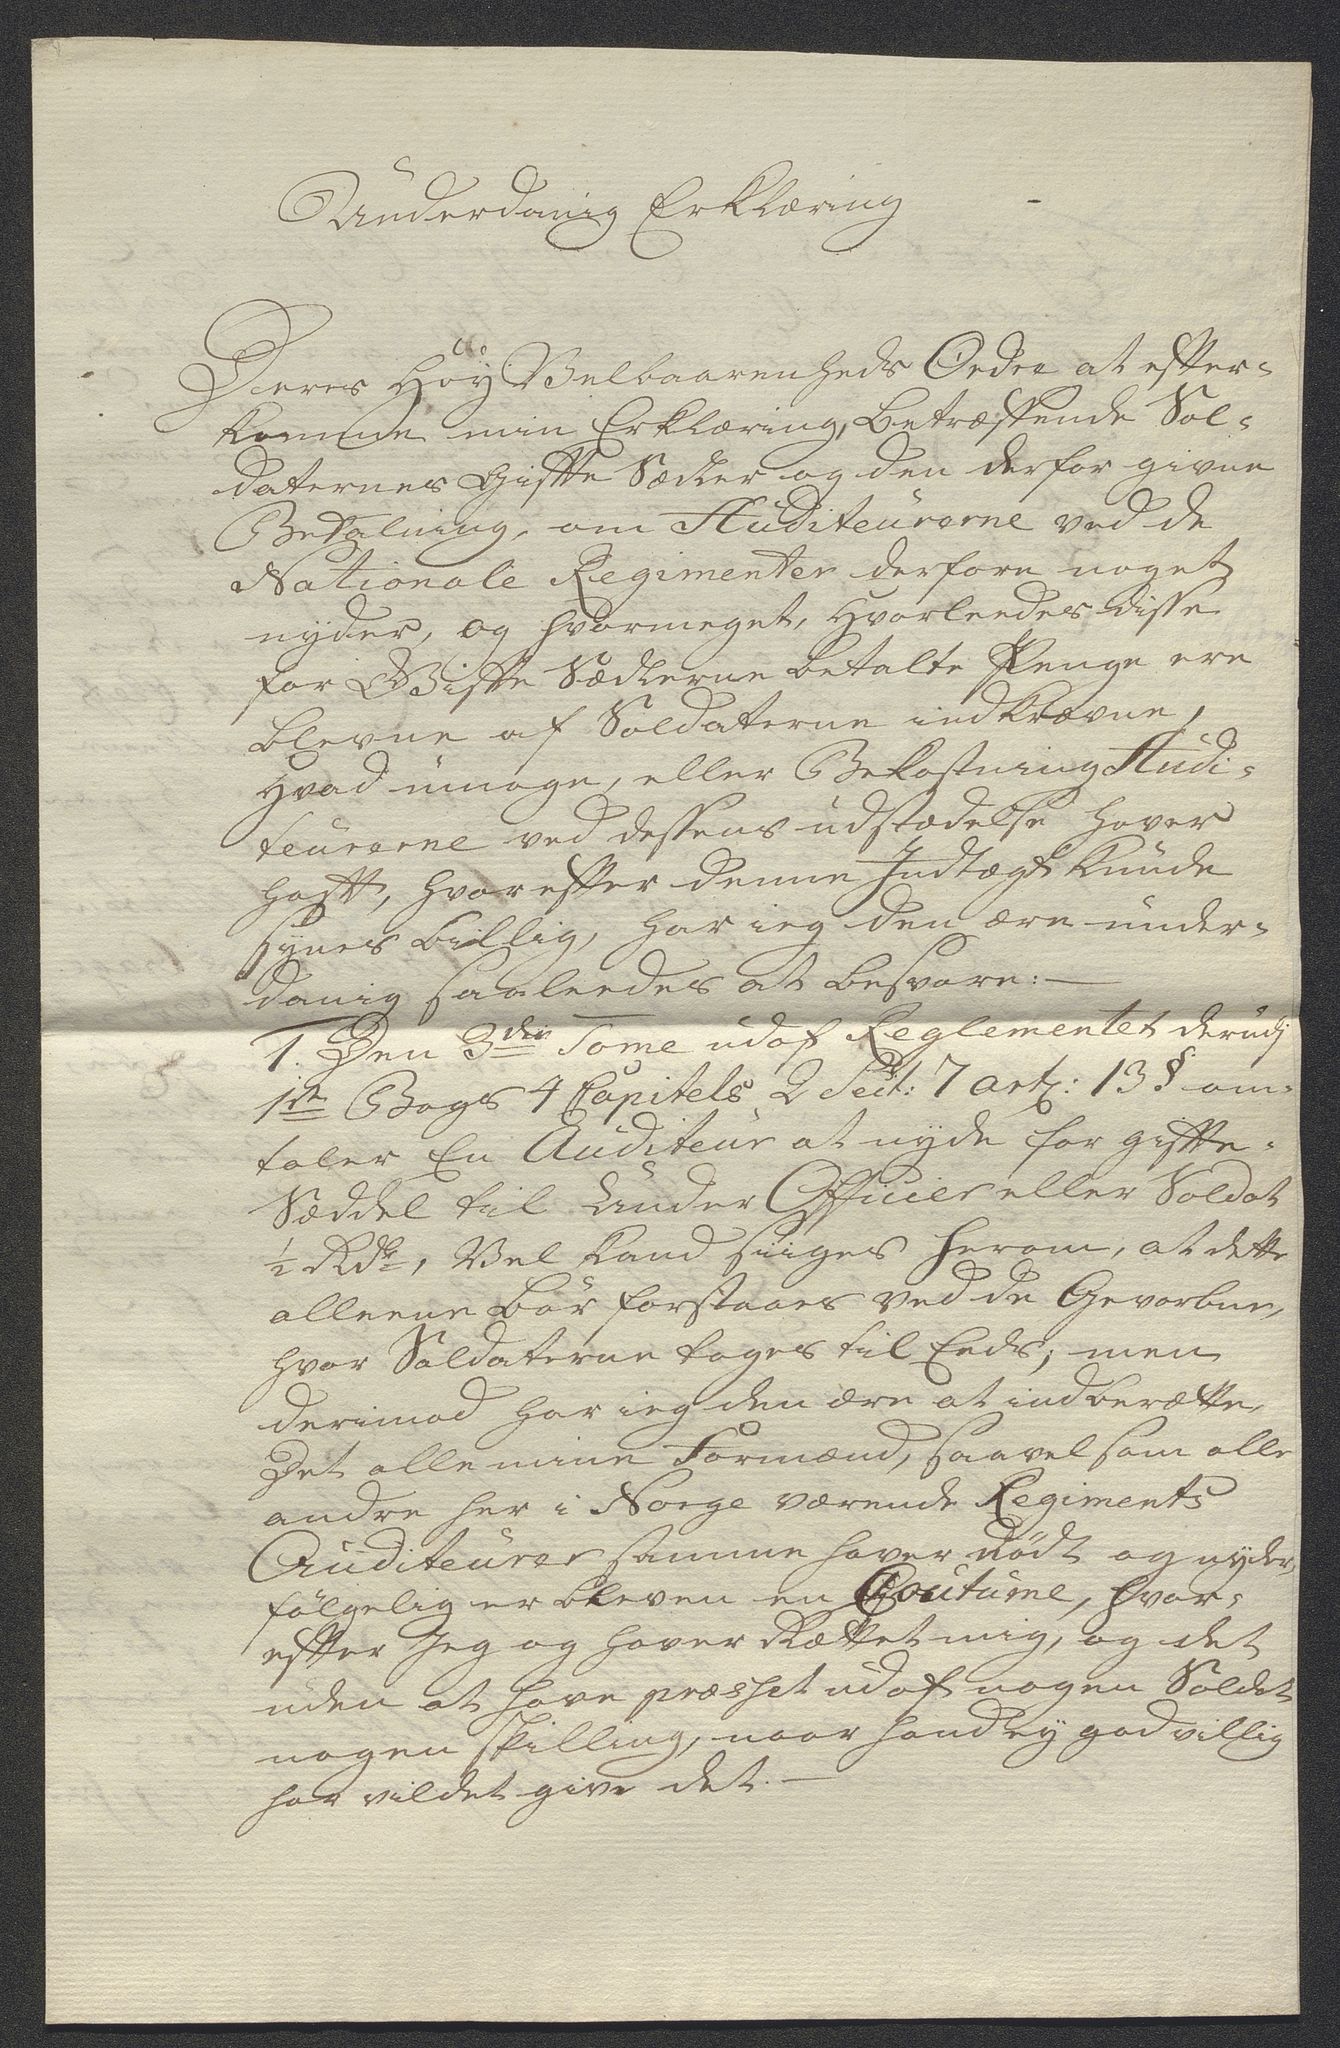 Underdanig Erklæring
Deres Höy Velbaarenheds Ordre at efter-
komme min Erklæring, Betræffende Sol-
daternes Gifte Sædler og den derfor givne
Betalning, om Auditeurerne ved de
Nationale Regimenter derfore noget
nyder, og hvormeget, Hvorleedes disse
for Gifte Sædlerne betalte Penge ere
blevne af Soldaterne indkrævne,
Hvad umage, eller Bekostning Audi-
teurerne ved dessens udstædelse haver
haft, hvorefter denne Indtægt kunde
synes billig, har ieg den ære under-
danig saaleedes at besvare: —
1. Den 3die Tome udaf Reglementet derudj
1te Bogs 4 Capitels 2 Sect: 7 art: 13 § om-
taler En Auditeur at nyde for gifte-
Sæddel til Under Officier eller Soldat
½ Rdr, Vel kand siiges herom, at dette
alleene bör forstaaes ved de Gevorbne,
hvor Soldaterne tages til Eeds; men
derimod har ieg den ære at indberætte,
Det alle mine Formænd, saavelsom alle
andre her i Norge værende Regiments
Auditeurer samme haver nödt og nyder,
fölgelig er bleven en Coutume, hvor-
efter Jeg og haver Rættet mig, og det
uden at have presset udaf nogen Soldat
nogen skilling, naar hand ey godvillig
har vildet give det. —